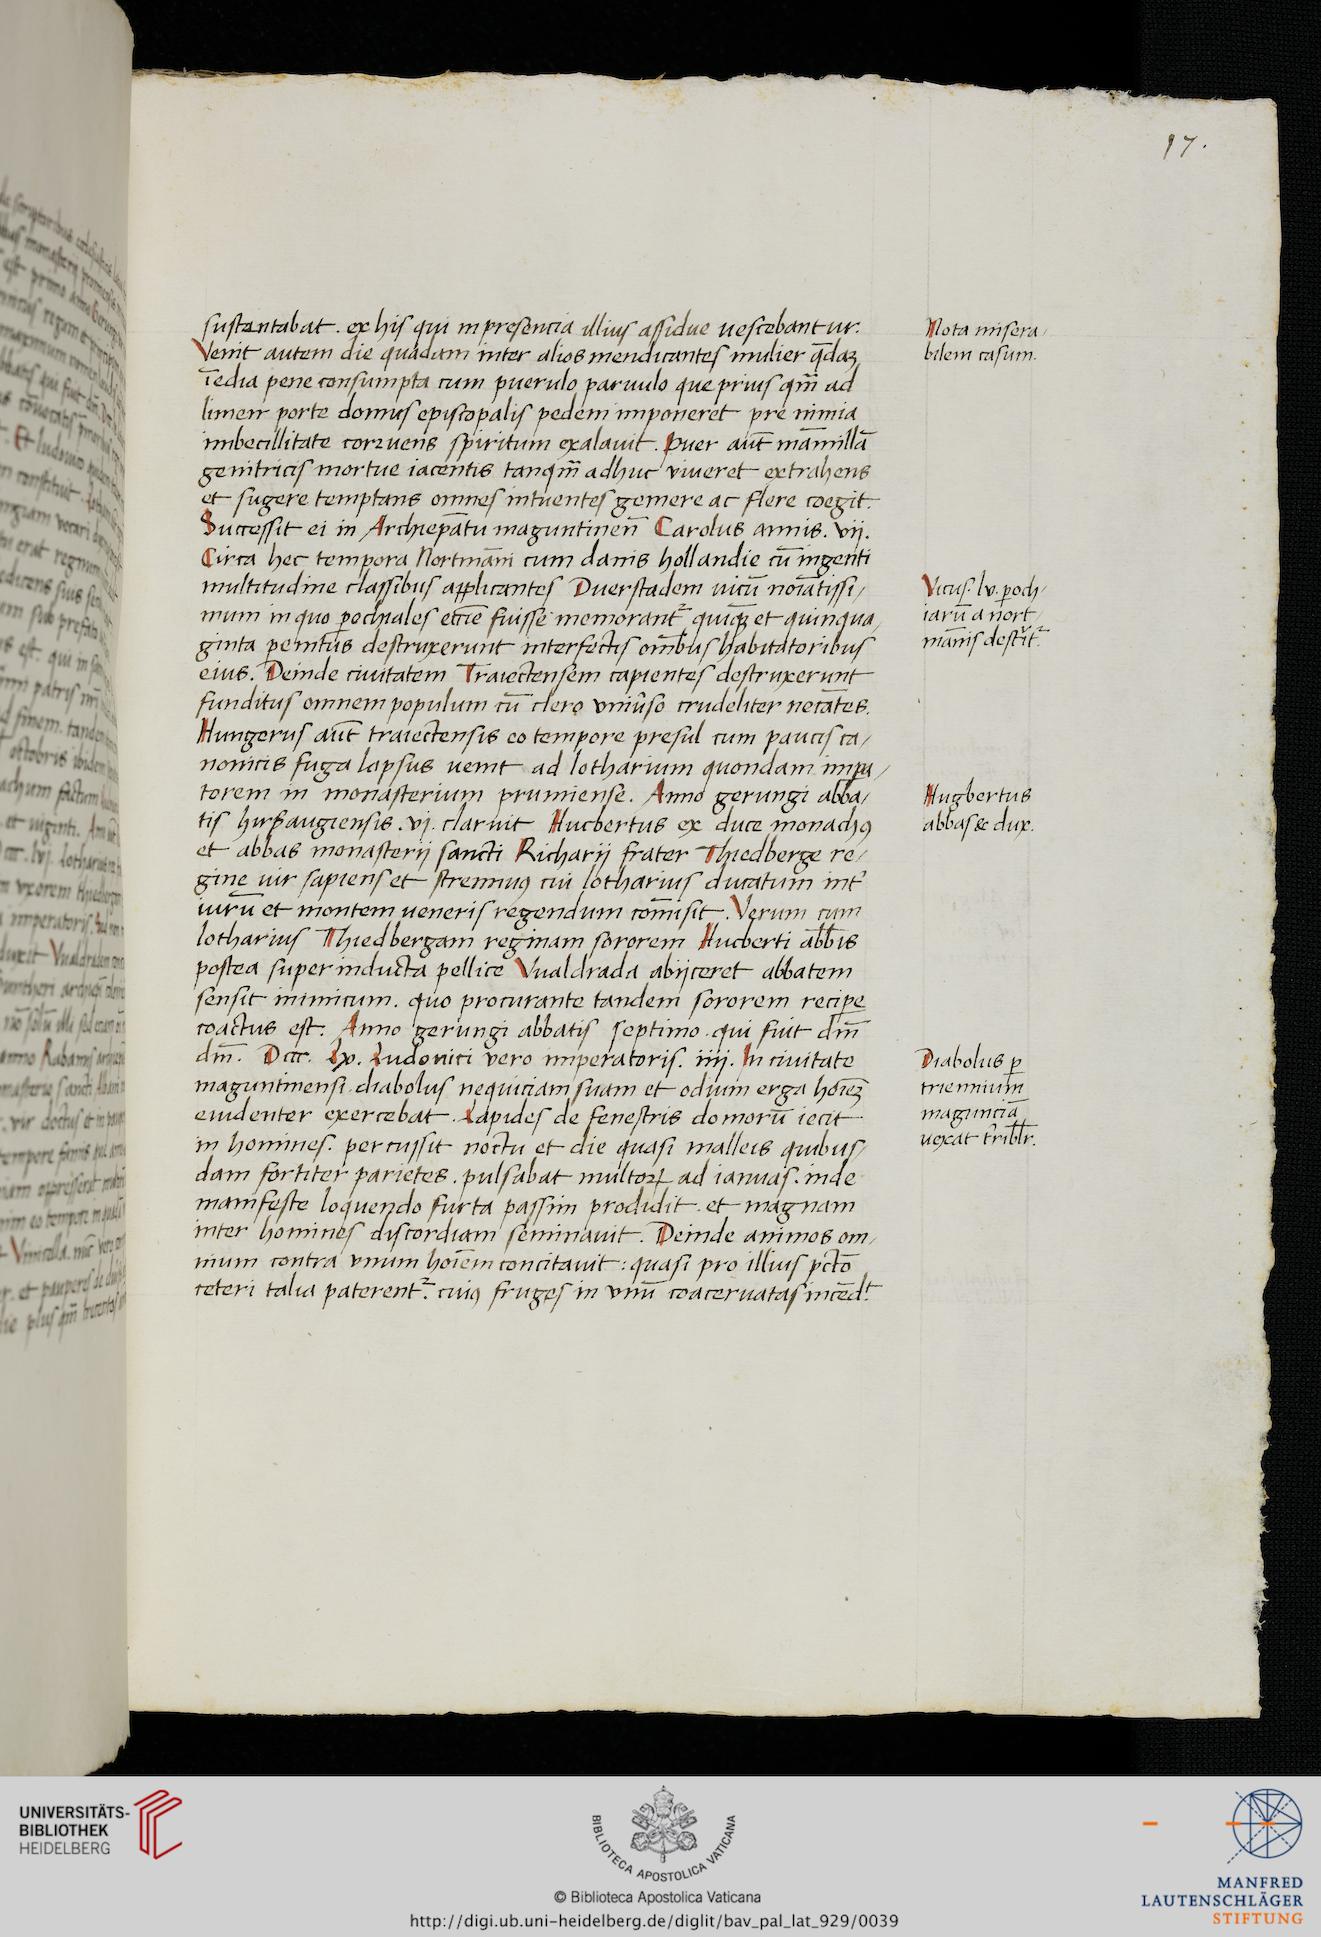 17.
sustentabat . ex his qui in presencia illius assidue uescebantur.
Venit autem die quadam inter alios mendicantes mulier q̄daʒ
īedia pene consumpta cum puerulo paruulo que prius qm̄ ad
limen porte domus episcopalis pedem imponeret pre nimia
imbecillitate corruens spiritum exalauit . Puer aut̄ māmillā
genitricis mortue iacentis tanqm̄ adhuc viueret extrahens
et sugere temptans omnes intuentes gemere ac flere coegit.
Successit ei in Archiepātu maguntinen̄ Carolus annis . vij.
Circa hec tempora Nortmāni cum danis hollandie cū ingenti
multitudine classibus applicantes Duerstadem uicū noīatissi/
mum in quo ꝑochiales eccīe fuisse memorant᷑ quīqʒ et quinqua/
ginta penitus destruxerunt interfectis om̄ibus habitatoribus
eius. Deinde ciuitatem Traiectensem capientes destruxerunt
funditus omnem populum cū clero vniūso crudeliter necātes.
Hungerus aut̄ traiectensis eo tempore presul cum paucis ca/
nonicis fuga lapsus uenit ad lotharium quondam impa/
torem in monasterium prumiense. Anno gerungi abba/
tis hirsaugiensis . vj . claruit Hucbertus ex duce monachꝰ
et abbas monasterij sancti Richarij frater Thiedberge re/
gine uir sapiens et strennuꝰ cui lotharius ducatum int᷑
iurū et montem ueneris regendum com̄isit . Verum cum
lotharius Thiedbergam reginam sororem Hucberti abb̄is
postea superinducta pellice Vualdrada abijceret abbatem
sensit inimicum . quo procurante tandem sororem recipe
coactus est. Anno gerungi abbatis septimo . qui fuit dm̄
dm̄. Dccc. lx. Ludouici vero imperatoris . iiij . In ciuitate
maguntinensi diabolus nequiciam suam et odium erga hoīeʒ
euidenter exercebat . Lapides de fenestris domorū iecit
in homines . percussit noctu et die quasi malleis quibus/
dam fortiter parietes . pulsabat multoꝝ ad ianuas . inde
manifeste loquendo furta passim prodidit . et magnam
inter homines discordiam seminauit . Deinde animos om/
nium contra vnum hoīem concitauit : quasi pro illius pctō
ceteri talia paterent᷑. cuiꝰ fruges in vnū coaceruatas incēd᷑t
Nota misera/
bilem casum.
Vicus . lv. ꝑoch/
iarū a nort/
mānis destr̄it᷑
Hugbertus
abbas & dux.
Diabolus ꝑ
triennium
magunciā
uexat tr̄ibłr.
UNIVERSITÄTS-
BIBLIOTHEK
HEIDELBERG
BIBLIOTECA APOSTOLICA VATICANA
© Biblioteca Apostolica Vaticana
http://digi.ub.uni-heidelberg.de/diglit/bav_pal_lat_929/0039
MANFRED
LAUTENSCHLÄGER
STIFTUNG